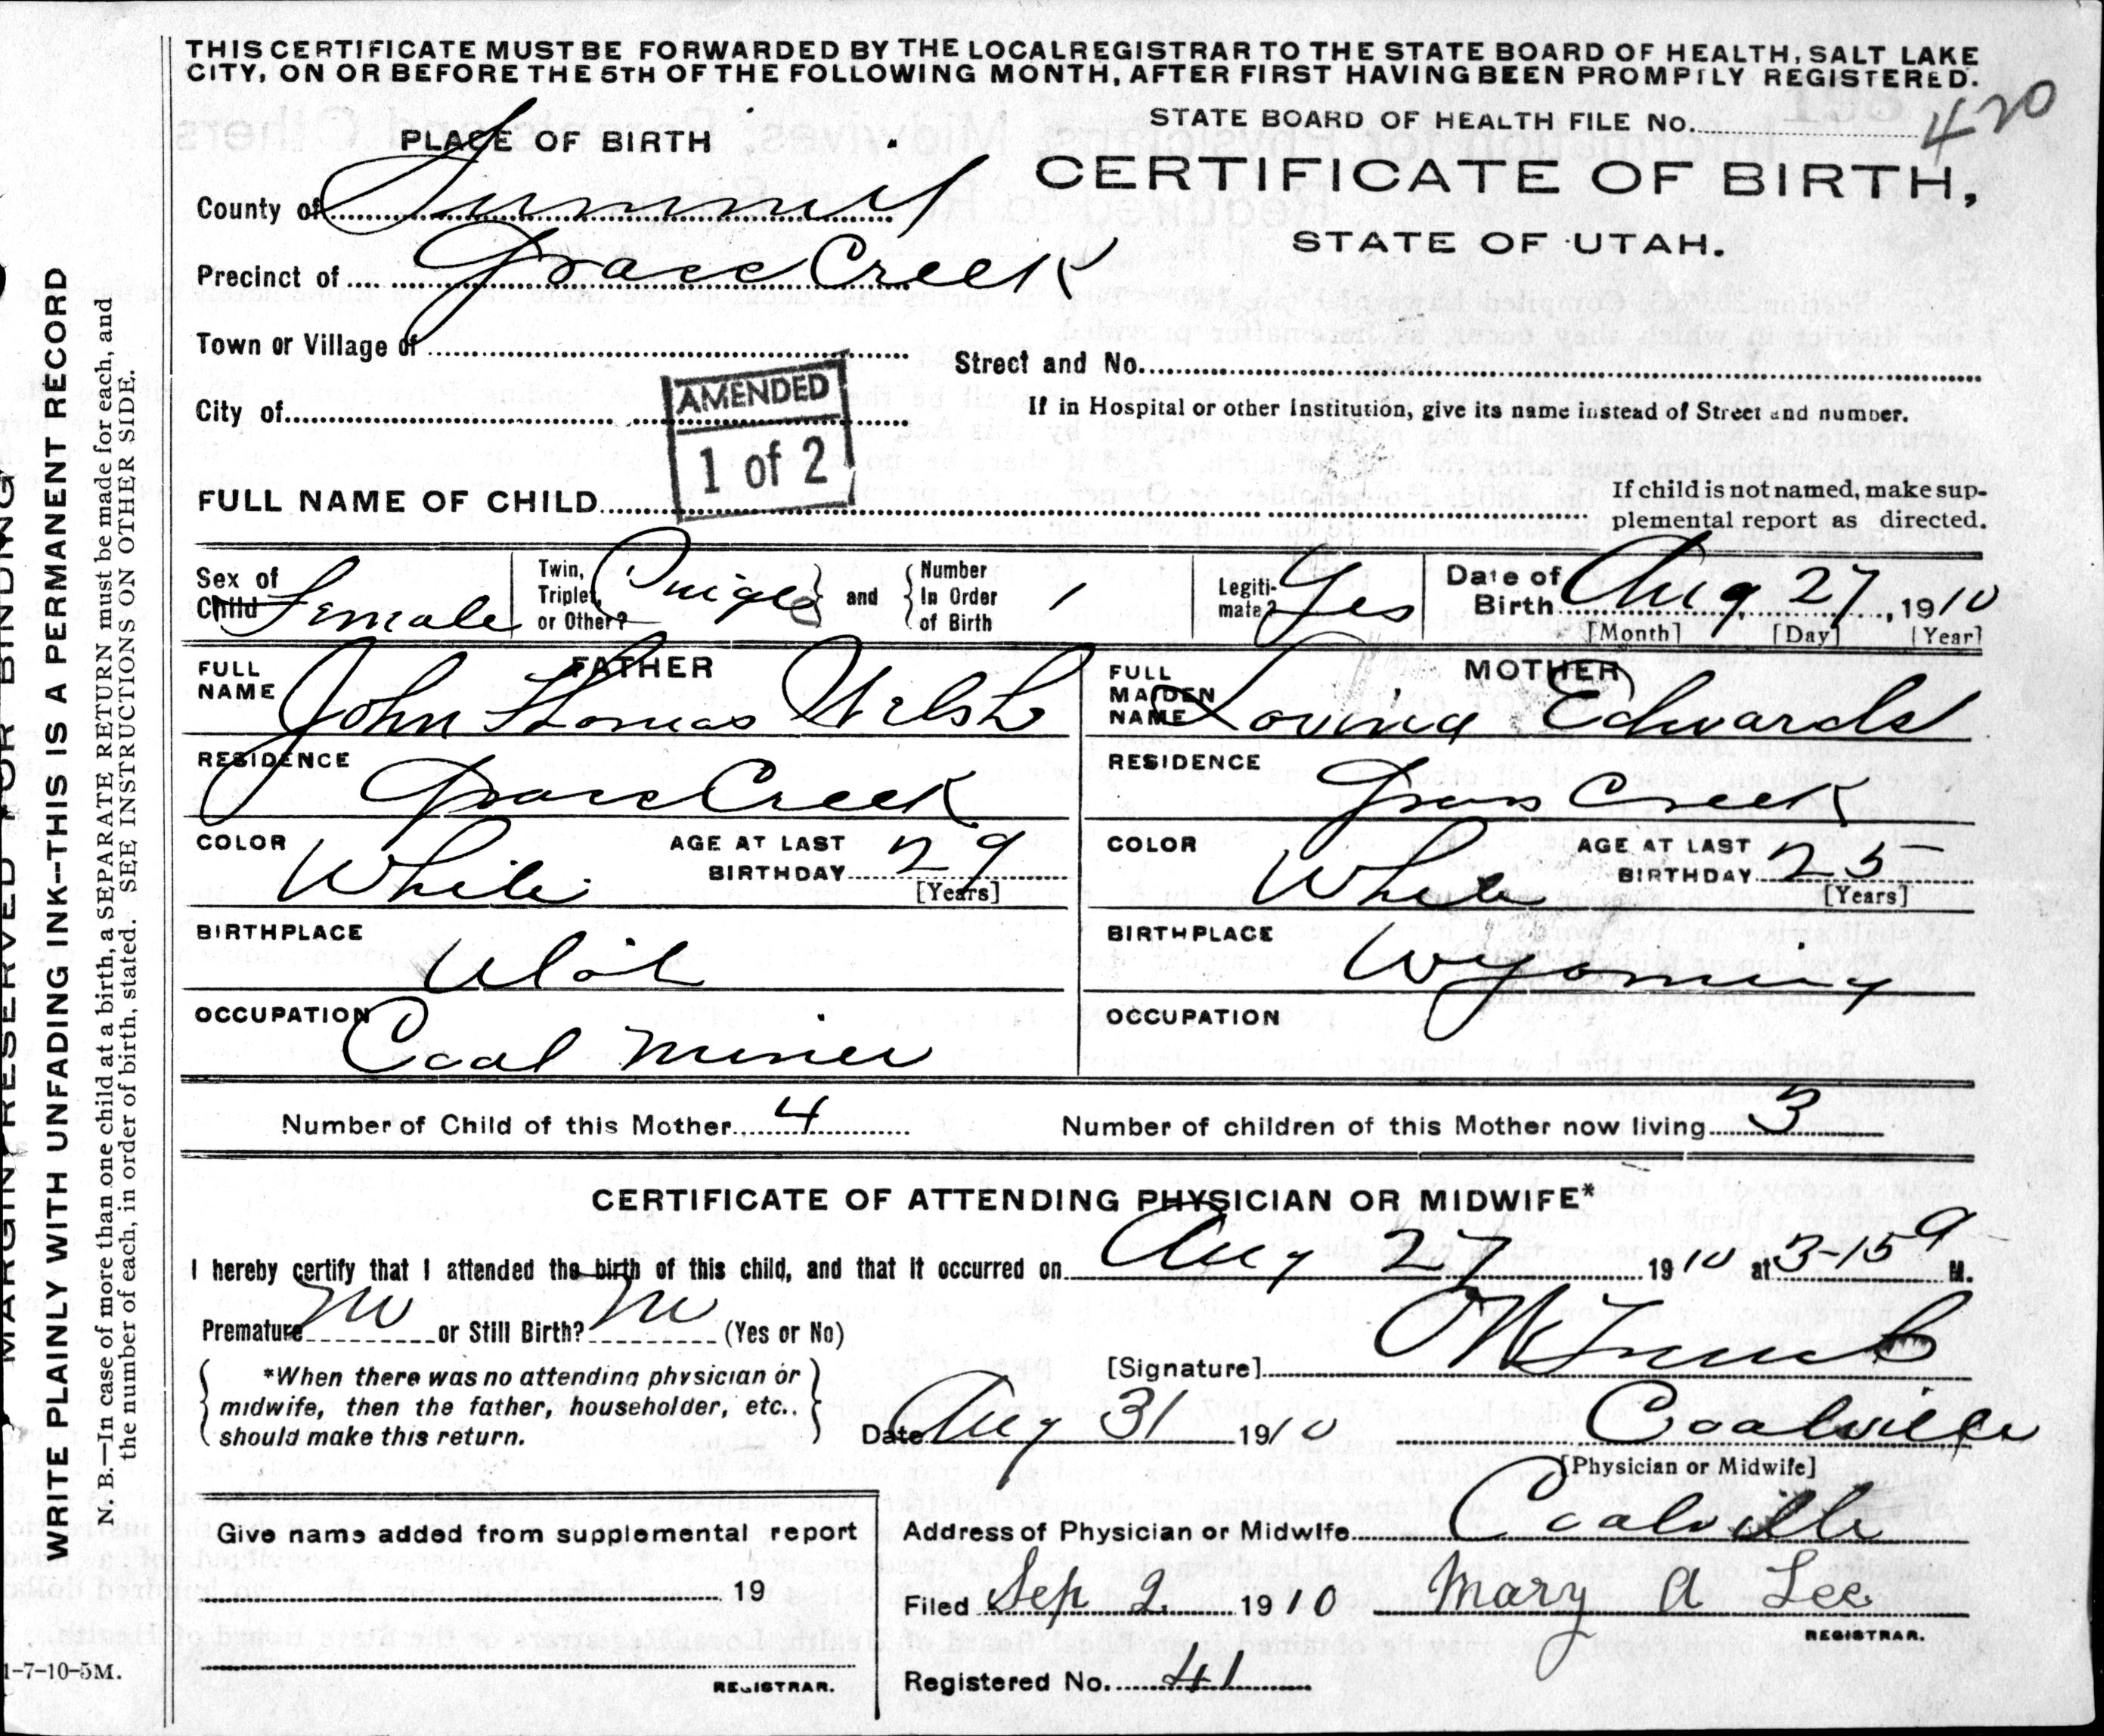 THIS CERTIFICATE MUST BE FORWARDED BY THE LOCAL REGISTRAR TO THE STATE BOARD OF HEALTH, SALT LAKE
CITY, ON OR BEFORE THE 5TH OF THE FOLLOWING MONTH, AFTER FIRST HAVING BEEN PROMPTLY REGISTERED.
STATE BOARD OF HEALTH FILE No. 420
PLACE OF BIRTH
CERTIFICATE OF BIRTH,
County of Summit
STATE OF UTAH.
Precinct of Grass Creek
Town or Village of
Street and No.
AMENDED
1 of 2
City of
If in Hospital or other Institution, give its name instead of Street and number.
FULL NAME OF CHILD
If child is not named, make sup-
plemental report as directed.
Sex of Child Female
Twin, Triplet, or Other? Single and Number In Order of Birth 1
Legiti-mate? Yes
Date of Birth Aug 27, 1910
[Month] [Day] [Year]
FATHER
FULL NAME John Thomas Welsh
RESIDENCE Grass Creek
COLOR White AGE AT LAST BIRTHDAY 29 [Years]
BIRTHPLACE Utah
OCCUPATION Coal Miner
MOTHER
FULL MAIDEN NAME Lovina Edwards
RESIDENCE Grass Creek
COLOR White AGE AT LAST BIRTHDAY 25 [Years]
BIRTHPLACE Wyoming
OCCUPATION
Number of Child of this Mother 4 Number of children of this Mother now living 3
CERTIFICATE OF ATTENDING PHYSICIAN OR MIDWIFE*
I hereby certify that I attended the birth of this child, and that it occurred on Aug 27 1910 at 3-15 a M.
Premature No or Still Birth? No (Yes or No)
[Signature]
*When there was no attending physician or
midwife, then the father, householder, etc.,
should make this return.
Date Aug 31 1910 Coalville
[Physician or Midwife]
Give name added from supplemental report
19
REGISTRAR.
Address of Physician or Midwife Coalville
Filed Sep 2 1910 Mary A Lee
REGISTRAR.
Registered No. 41
1-7-10-5M.
MARGIN RESERVED FOR BINDING
WRITE PLAINLY WITH UNFADING INK--THIS IS A PERMANENT RECORD
N. B.—In case of more than one child at a birth, a SEPARATE RETURN must be made for each, and
the number of each, in order of birth, stated. SEE INSTRUCTIONS ON OTHER SIDE.